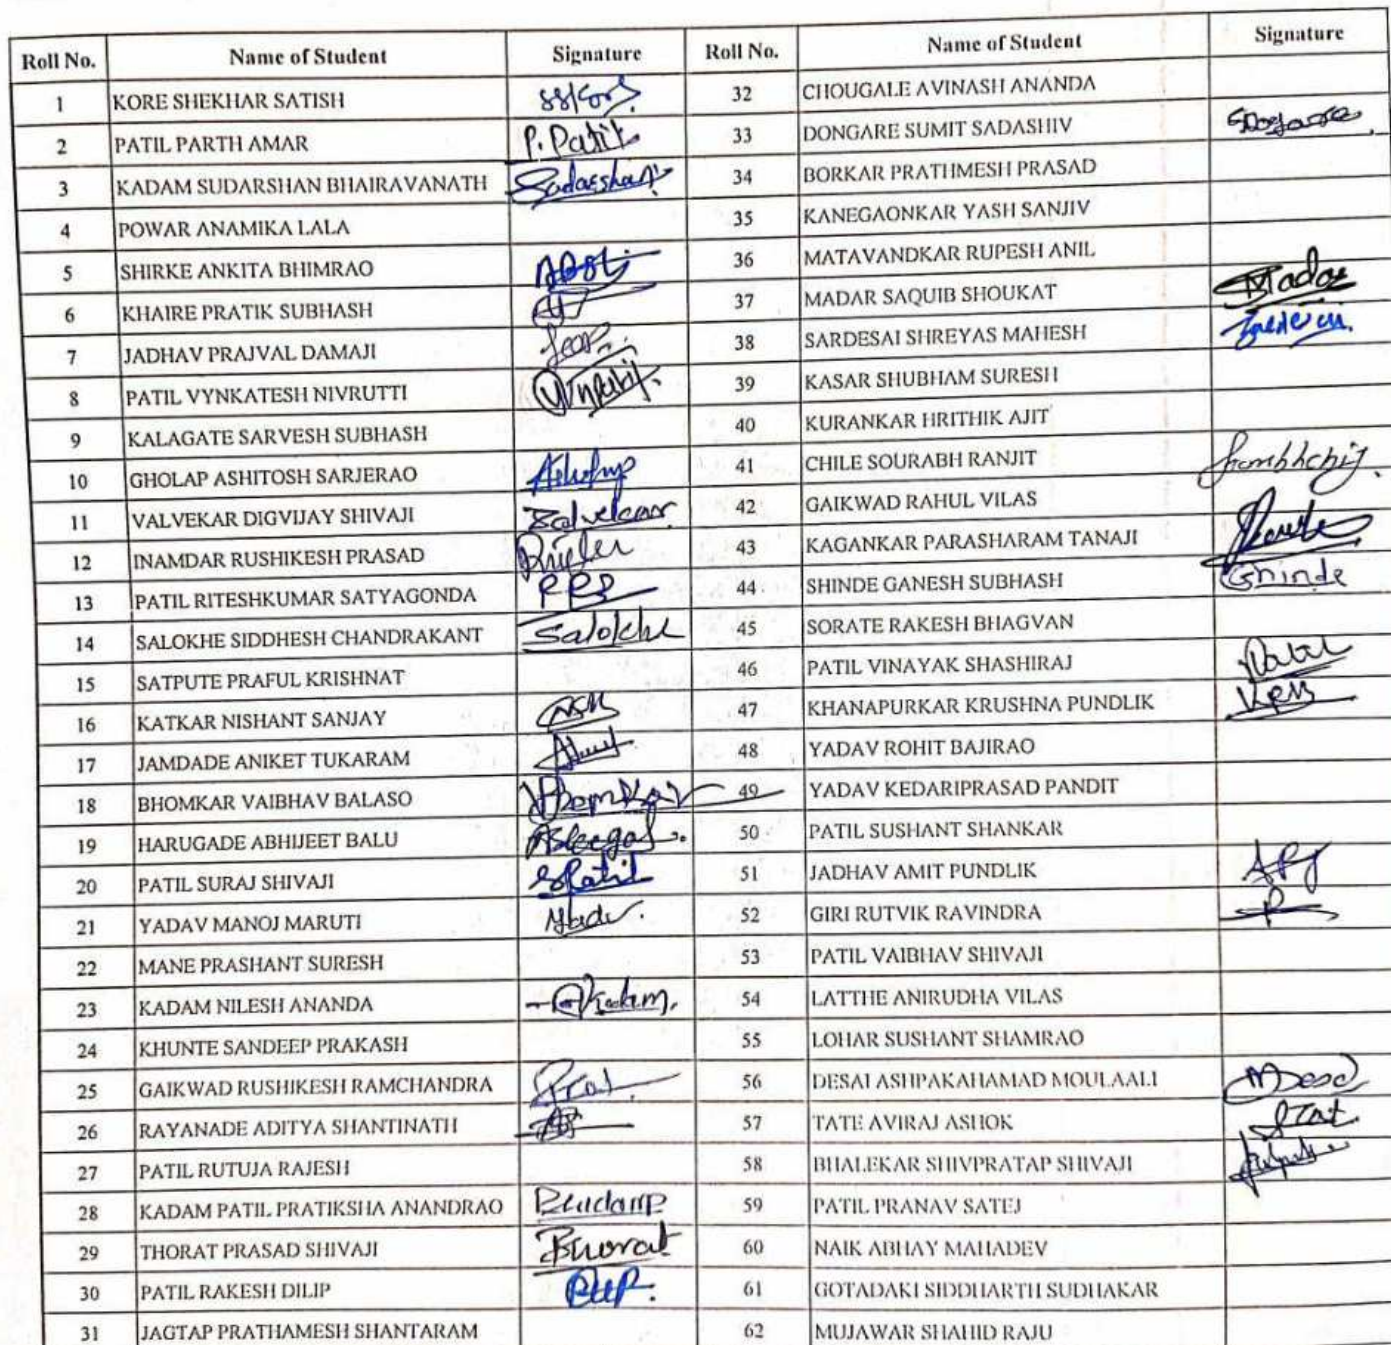 Roll No. Name of Student Signature Roll No. Name of Student Signature
1 KORE SHEKHAR SATISH 32 CHOUGALE AVINASH ANANDA
2 PATIL PARTH AMAR P. Patil 33 DONGARE SUMIT SADASHIV
3 KADAM SUDARSHAN BHAIRAVANATH Sudarshan 34 BORKAR PRATHMESH PRASAD
4 POWAR ANAMIKA LALA 35 KANEGAONKAR YASH SANJIV
5 SHIRKE ANKITA BHIMRAO 36 MATAVANDKAR RUPESH ANIL
6 KHAIRE PRATIK SUBHASH 37 MADAR SAQUIB SHOUKAT Madar
7 JADHAV PRAJVAL DAMAJI 38 SARDESAI SHREYAS MAHESH
8 PATIL VYNKATESH NIVRUTTI 39 KASAR SHUBHAM SURESH
9 KALAGATE SARVESH SUBHASH 40 KURANKAR HRITHIK AJIT
10 GHOLAP ASHITOSH SARJERAO 41 CHILE SOURABH RANJIT
11 VALVEKAR DIGVIJAY SHIVAJI 42 GAIKWAD RAHUL VILAS
12 INAMDAR RUSHIKESH PRASAD 43 KAGANKAR PARASHARAM TANAJI
13 PATIL RITESHKUMAR SATYAGONDA 44 SHINDE GANESH SUBHASH
14 SALOKHE SIDDHESH CHANDRAKANT Salokhe 45 SORATE RAKESH BHAGVAN
15 SATPUTE PRAFUL KRISHNAT 46 PATIL VINAYAK SHASHIRAJ
16 KATKAR NISHANT SANJAY 47 KHANAPURKAR KRUSHNA PUNDLIK
17 JAMDADE ANIKET TUKARAM 48 YADAV ROHIT BAJIRAO
18 BHOMKAR VAIBHAV BALASO 49 YADAV KEDARIPRASAD PANDIT
19 HARUGADE ABHIJEET BALU 50 PATIL SUSHANT SHANKAR
20 PATIL SURAJ SHIVAJI SPatil 51 JADHAV AMIT PUNDLIK APJ
21 YADAV MANOJ MARUTI 52 GIRI RUTVIK RAVINDRA
22 MANE PRASHANT SURESH 53 PATIL VAIBHAV SHIVAJI
23 KADAM NILESH ANANDA 54 LATTHE ANIRUDHA VILAS
24 KHUNTE SANDEEP PRAKASH 55 LOHAR SUSHANT SHAMRAO
25 GAIKWAD RUSHIKESH RAMCHANDRA 56 DESAI ASHPAKAHAMAD MOULAALI
26 RAYANADE ADITYA SHANTINATH 57 TATE AVIRAJ ASHOK
27 PATIL RUTUJA RAJESH 58 BHALEKAR SHIVPRATAP SHIVAJI
28 KADAM PATIL PRATIKSHA ANANDRAO 59 PATIL PRANAV SATEJ
29 THORAT PRASAD SHIVAJI 60 NAIK ABHAY MAHADEV
30 PATIL RAKESH DILIP 61 GOTADAKI SIDDHARTH SUDHAKAR
31 JAGTAP PRATHAMESH SHANTARAM 62 MUJAWAR SHAHID RAJU